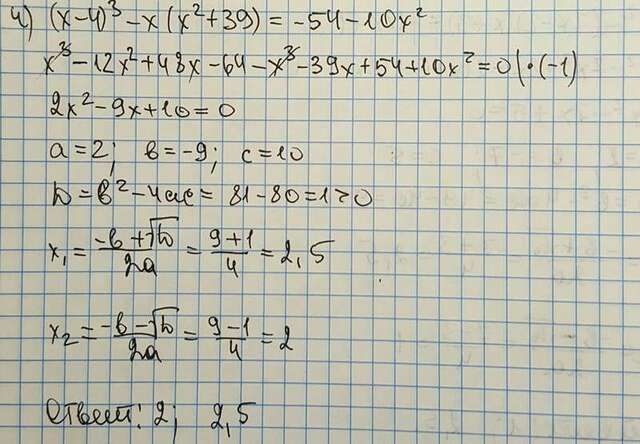 4) (x-4)³ - x(x²+39) = -54-10x²
x³-12x²+48x-64-x³-39x+54+10x²=0|·(-1)
2x²-9x+10=0
a=2; b=-9; c=10
D=b²-4ac=81-80=1>0
x₁=(-b+√D)/2a=(9+1)/4=2,5
x₂=(-b-√D)/2a=(9-1)/4=2
Ответ: 2; 2,5